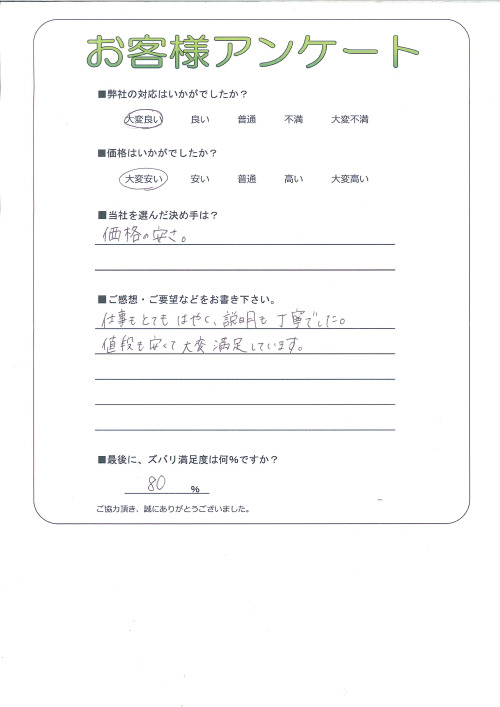 お客様アンケート
■弊社の対応はいかがでしたか？
大変良い 良い 普通 不満 大変不満
■価格はいかがでしたか？
大変安い 安い 普通 高い 大変高い
■当社を選んだ決め手は？
価格の安さ。
■ご感想・ご要望などをお書き下さい。
仕事もとてもはやく、説明も丁寧でした。
値段も安くて大変満足しています。
■最後に、ズバリ満足度は何%ですか？
80 %
ご協力頂き、誠にありがとうございました。